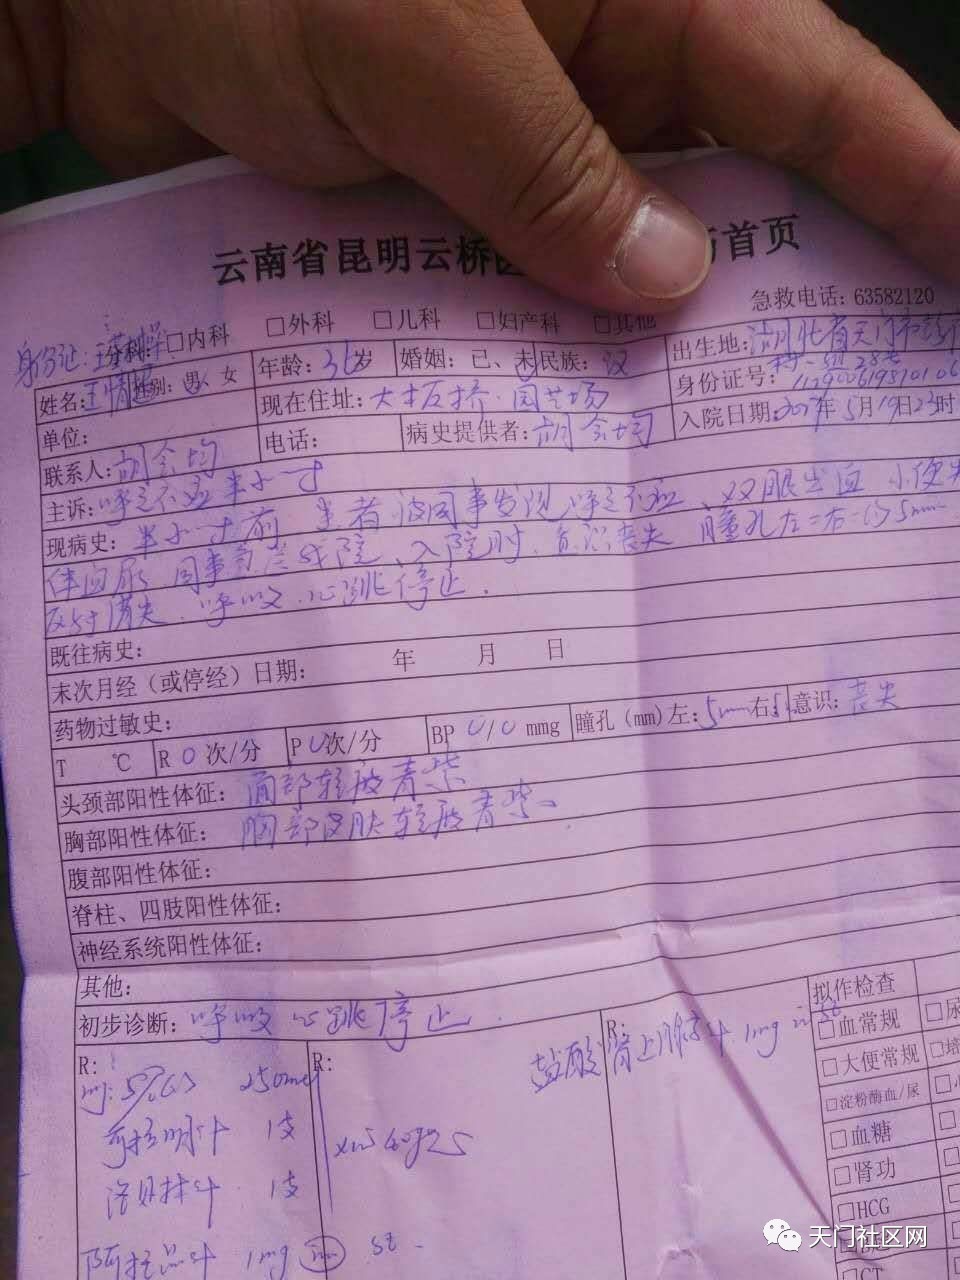 云南省昆明云桥医 首页
急救电话：63582120
身份证：王
分科：□内科 □外科 □儿科 □妇产科 □其他
姓名：王情 性别：男、女 年龄：36岁 婚姻：已、未 民族：汉 出生地：湖北省天门市
现在住址：大板桥·园艺场 身份证号：
单位： 电话： 病史提供者：胡会均 入院日期：2017年5月19日23时
联系人：胡会均
主诉：呼之不应半小时
现病史：半小时前 患者被同事发现呼之不应、双眼出血 小便失
体血尿 同事 送我院、入院时、意识丧失 瞳孔左=右=约5mm
反射消失、呼吸、心跳停止．
既往病史：
末次月经（或停经）日期： 年 月 日
药物过敏史：
T ℃ R 0 次/分 P 0次/分 BP 0/0 mmg 瞳孔（mm）左：5mm右： 意识：丧失
头颈部阳性体征：面部轻度青紫
胸部阳性体征：胸部皮肤轻度青紫
腹部阳性体征：
脊柱、四肢阳性体征：
神经系统阳性体征：
其他：
初步诊断：呼吸心跳停止．
拟作检查
R： R： R：
盐酸肾上腺素针 1mg
□血常规 □尿
5%GS 250ml
□大便常规
可拉明针 1支
□淀粉酶血/尿
□血糖
洛贝林针 1支
□肾功
□HCG
阿托品针 1mg st．
□CT
天门社区网